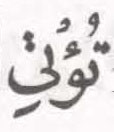 تُؤْتِي